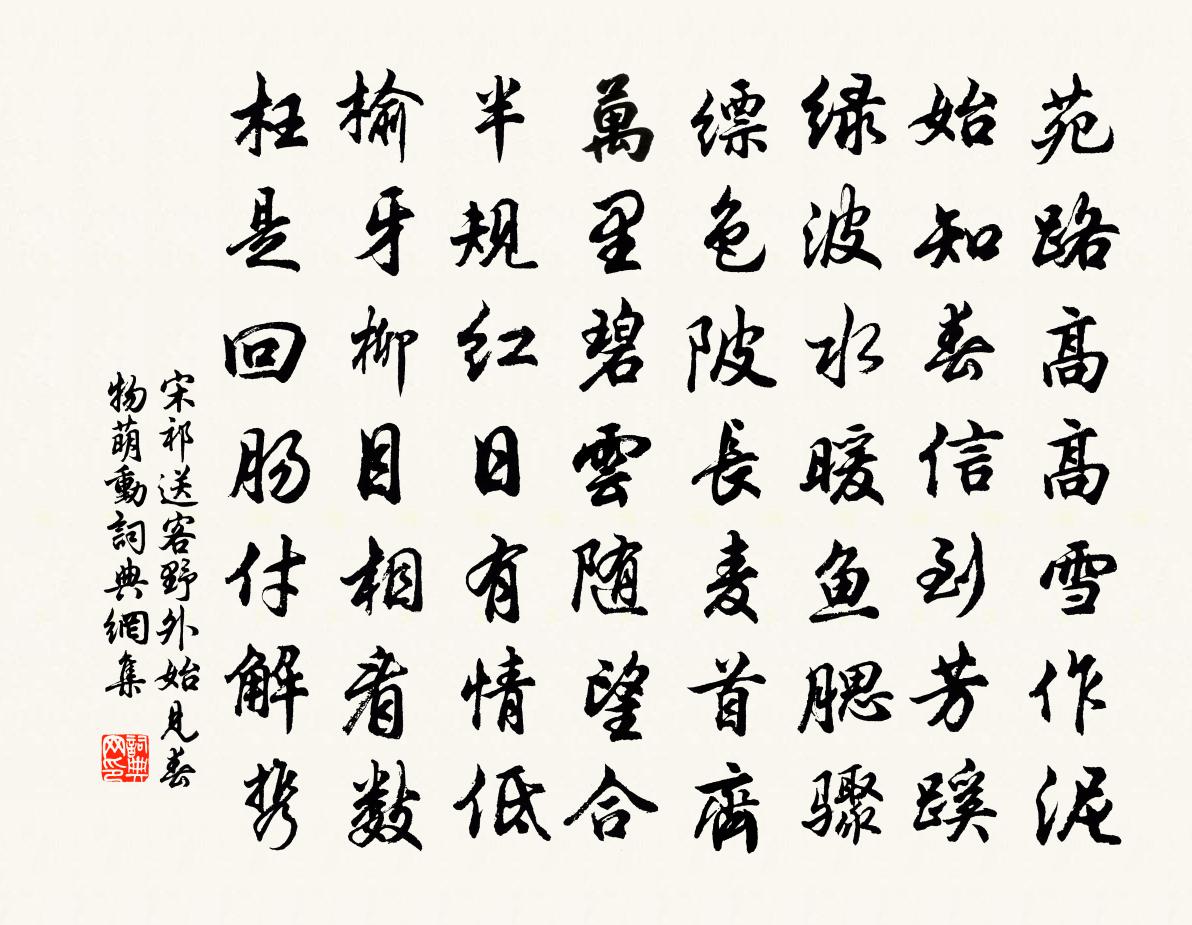 苑路高高雪作泥
始知春信到芳蹊
緑波水暖鱼腮骤
縹色陂長麦首齊
萬里碧雲随望合
半規紅日有情低
榆牙柳目相看数
枉是回肠付解携
宋祁送客野外始見春
物萌動詞典網集
詞典
网印